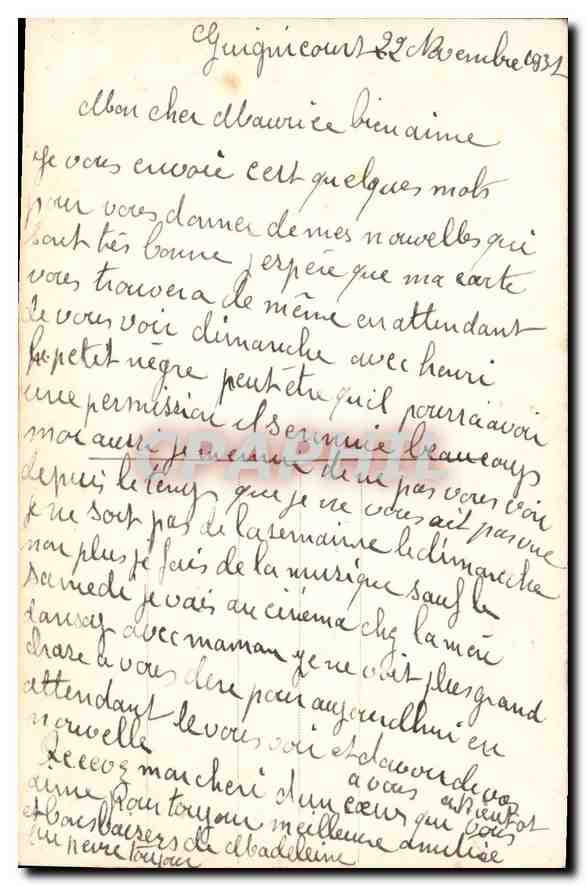 Guignicourt 22 Novembre 1931
Mon cher Maurice bien aimé
Je vous envoie cest quelques mots
pour vous donner de mes nouvelles qui
sont très bonne j'espère que ma carte
vous trouvera de même en attendant
de vous voir dimanche avec henri
le petit nègre peut être qu'il pourra avoir
une permission il sennuie beaucoup
moi aussi je mennuie de ne pas vous voir
depuis le temps que je ne vous ait pas vue
je ne sort pas de la semaine le dimanche
non plus je fais de la musique sauf le
samedi je vais au cinéma chez la mère
avec maman je ne voit plus grand
chose a vous dire pour aujourdhui en
attendant de vous voir et davoir de vos
nouvelle a vous a bientot
Recevez mon cheri d'un cœur que vous
aime pour toujour meilleure amitiée
et bons baisers de Madeleine
toujour
CPAPHIL